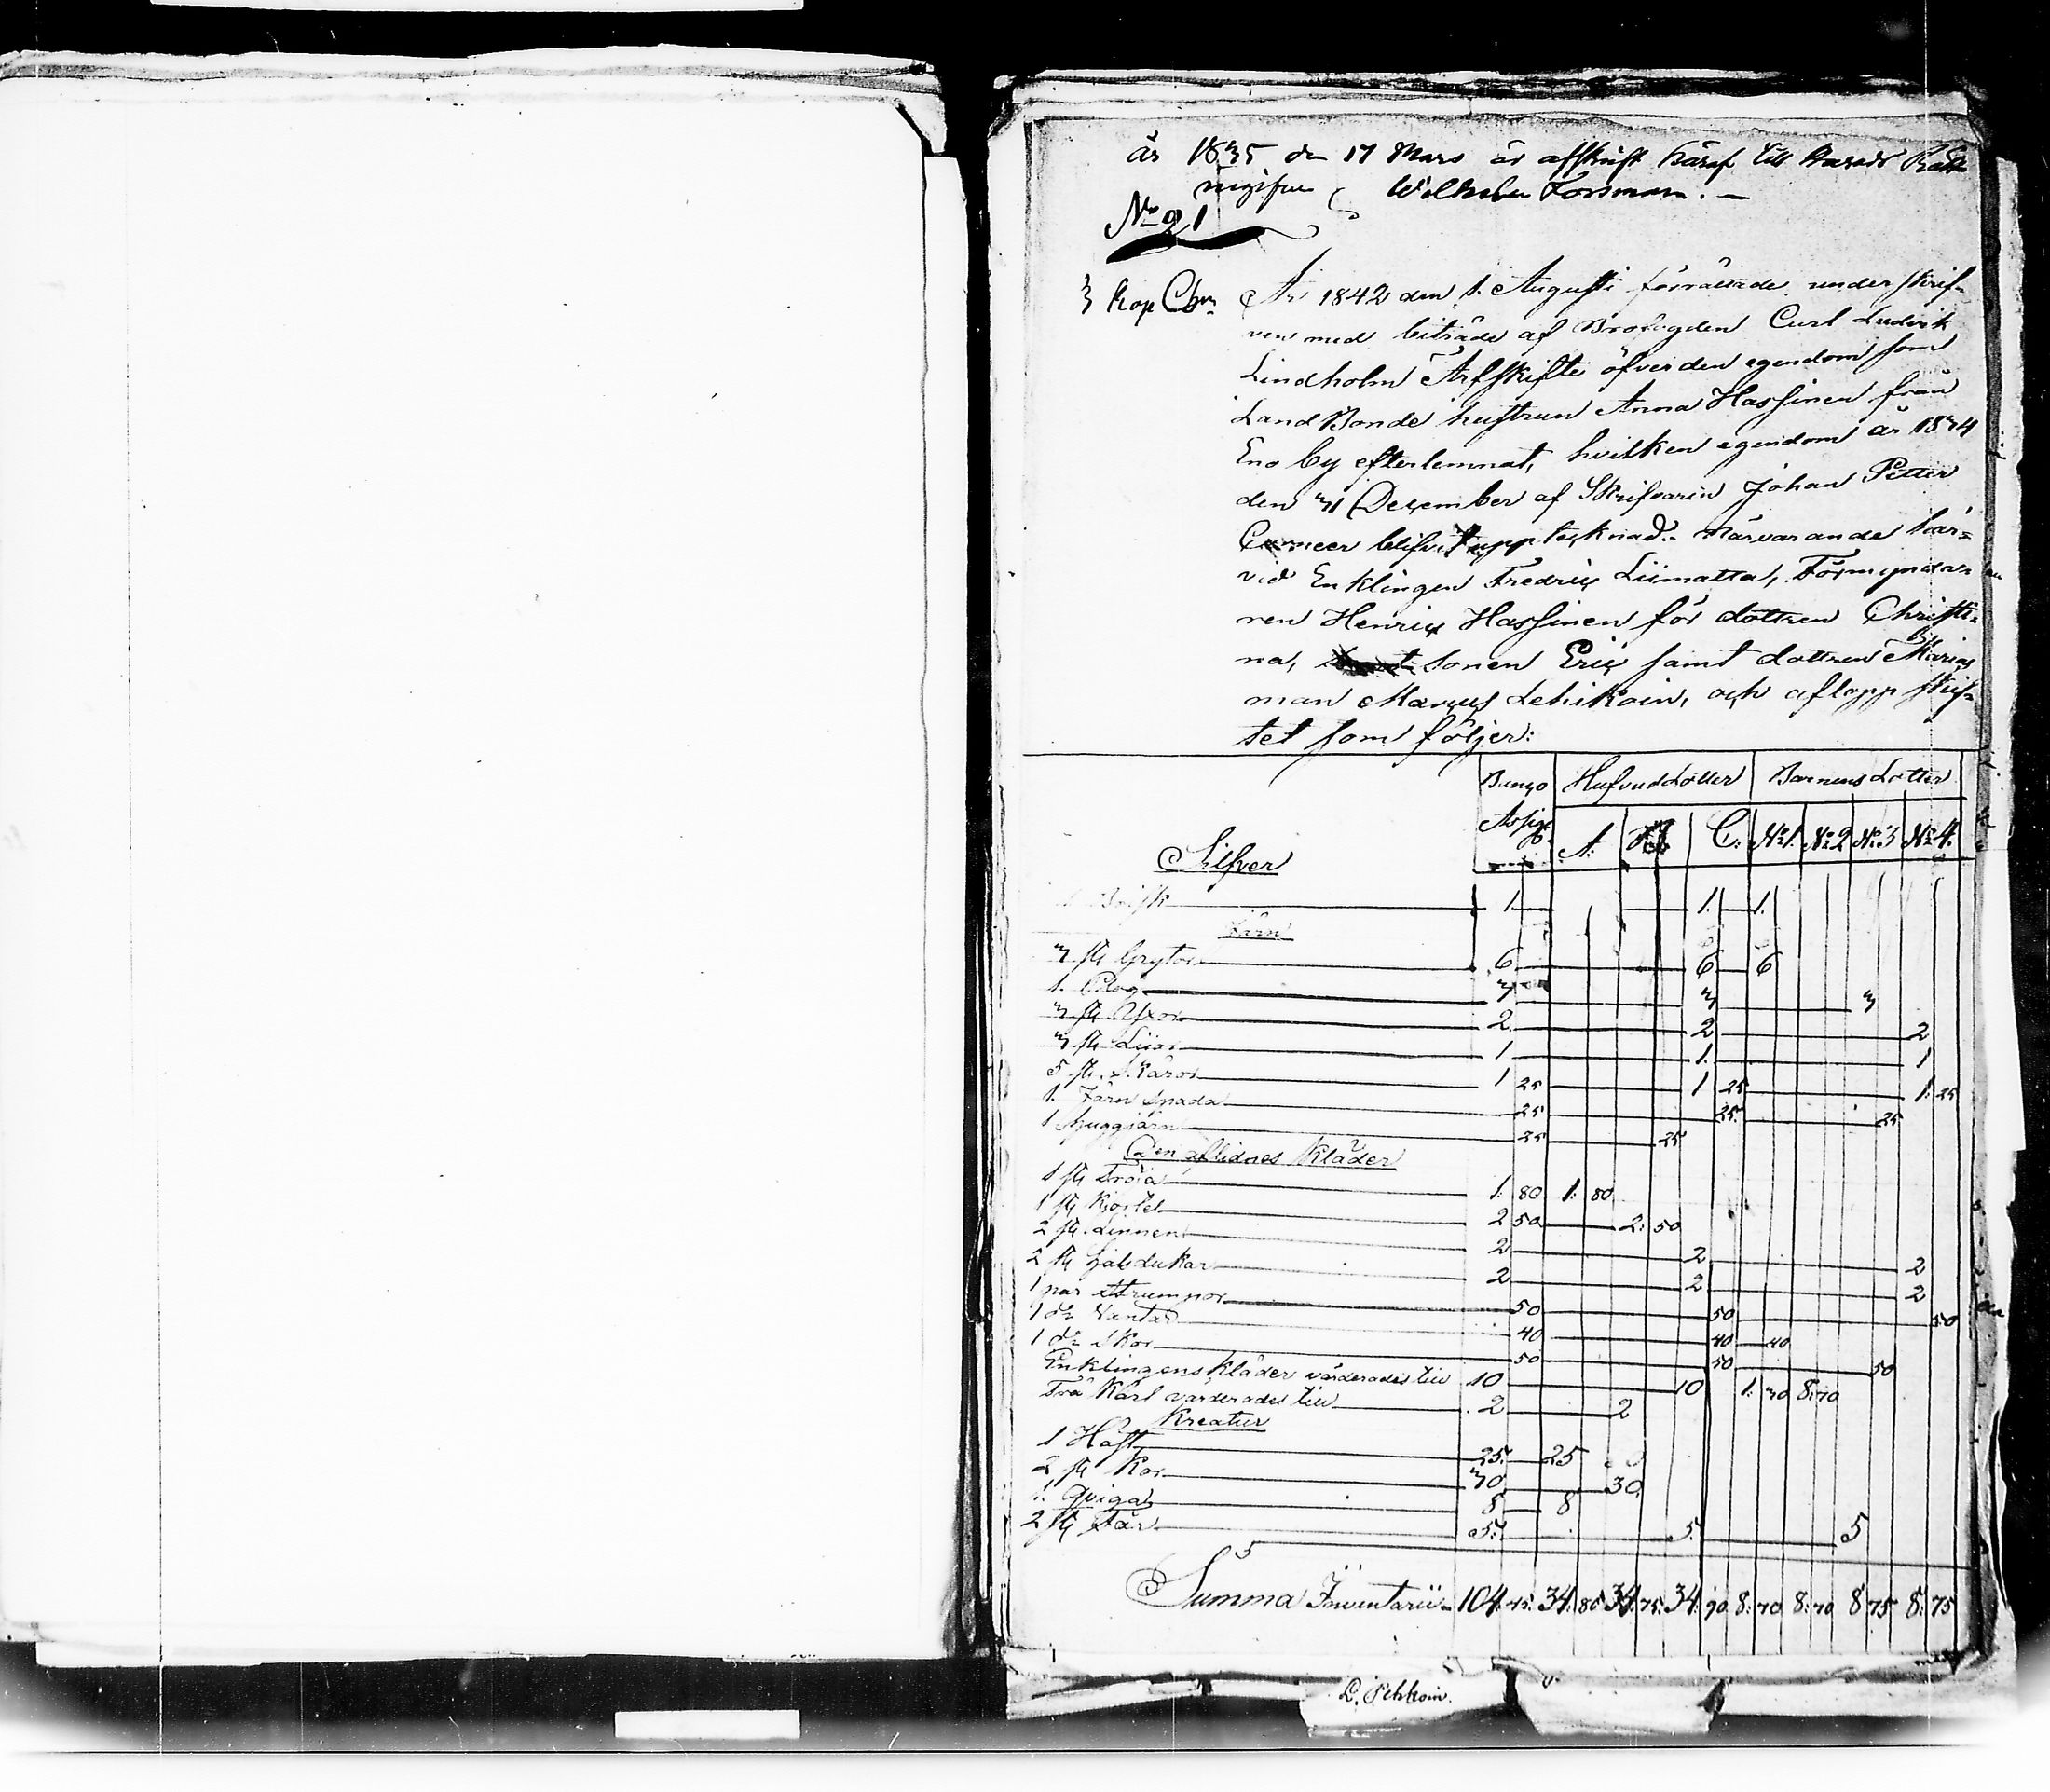 år 1835 den 17 Mars är afskrift häraf till Härads Rätt
ingifven Wilhelm Forsman. –
No 21
3 Kop Chr
År 1842 den 1. Augusti förrättade underskrif-
ven med biträde af Brofogden Carl Ludvik
Lindholm Arfskifte öfver den egendom som
LandBonde hustrun Anna Hassinen från
Eno by efterlemnat, hvilken egendom år 1834
den 31 December af Skrifvaren Johan Petter
blifvit upptecknad.. Närvarande här=
vid Enklingen Fredric Liimatta, Förmynda-
ren Henric Hassinen för dottren Christi-
na, sonen Eric samt dottren Marias
man Marcus Lehikoin, och aflopp skif-
tet som följer:
Banco Hufvud Lotter Barnens Lotter
Assig. A: B C. No 1. No 2 No 3 No 4.
Silfver
1 Brisk 1. 1. 1.
Järn
3 st Grytor 6 6 6
1. Plog 3 3 3
3 st Yxor 2 2 2
3 st Liior 1 1. 1
5 st Skäror 1 25 1 25 1. 25
1. Järn Spada 25 25. 25
1 Huggjärn 25 25
Den aflidnes Kläder
1 st Tröia 1. 80 1. 80
1 st Kjortel 2 50 2. 50
2 st Linnen 2 2 2
2 st Halsdukar 2 2 2
1 par Strumpor 50 50 50
1 do Vantar 40 40 40
1 do Skor 50 50 50
Enklingens Kläder värderades till 10 10 1. 30 8. 70
Trä Kärl värderades till 2 2
Kreatur
1 Häst 25. 25
2 st Kor 30 30
1. Qviga 8 8
2 st Får 5. 5. 5
Summa Inventarii 104. 45. 34. 80 34. 75. 34. 90 8. 70 8. 70 8 75 8. 75
D. Pehkoin.